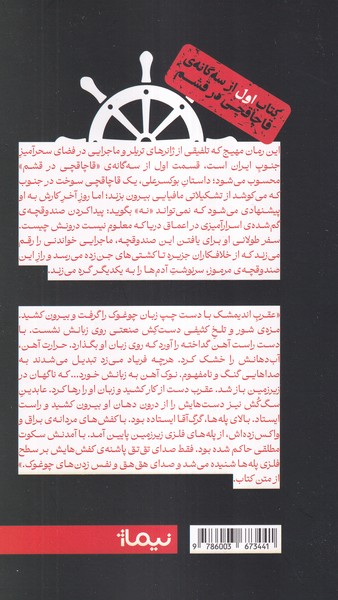 کتاب اول از سه‌گانه‌ی
قاچاقچی در قشم
این رمان مهیج که تلفیقی از ژانرهای تریلر و ماجرایی در فضای سحرآمیز
جنوب ایران است، قسمت اول از سه‌گانه‌ی «قاچاقچی در قشم»
محسوب می‌شود؛ داستانِ بوکسر‌علی، یک قاچاقچی سوخت در جنوب
که می‌کوشد از تشکیلاتی مافیایی بیرون بزند؛ اما روز آخر کارش به او
پیشنهادی می‌شود که نمی‌تواند «نه» بگوید: پیدا کردن صندوقچه‌ی
گم‌شده‌ی اسرارآمیزی در اعماق دریا که معلوم نیست درونش چیست.
سفر طولانی او برای یافتن این صندوقچه، ماجرایی خواندنی را رقم
می‌زند که از خلافکاران جزیره تا کشتی‌های جن‌زده می‌رسد و رازِ این
صندوقچه‌ی مرموز، سرنوشتِ آدم‌ها را به یکدیگر گره می‌زند.
«عقربِ اندیمشک با دست چپ زبان چوغوک را گرفت و بیرون کشید.
مزه‌ی شور و تلخ کثیفی دست‌کش صنعتی روی زبانش نشست. با
دست راست آهن گداخته را آورد که روی زبان او بگذارد. حرارت آهن،
آب دهانش را خشک کرد. هرچه فریاد می‌زد تبدیل می‌شدند به
صداهایی گنگ و نامفهوم. نوک آهن به زبانش خورد... که ناگهان در
زیرزمین باز شد. عقرب دست از کار کشید و زبان او را رها کرد. عابدینِ
سگ‌کُش نیز دست‌هایش را از درون دهان او بیرون کشید و راست
ایستاد. بالای پله‌ها، گرگ‌آقا ایستاده بود. با کفش‌های مردانه‌ی براق و
واکس‌زده‌اش، از پله‌های فلزی زیرزمین پایین آمد. با آمدنش سکوت
مطلقی حاکم شده بود. فقط صدای تق‌تق پاشنه‌ی کفش‌هایش بر سطح
فلزی پله‌ها شنیده می‌شد و صدای هق‌هق و نفس زدن‌های چوغوک.»
از متن کتاب.
نیماژ
9 786003 673441